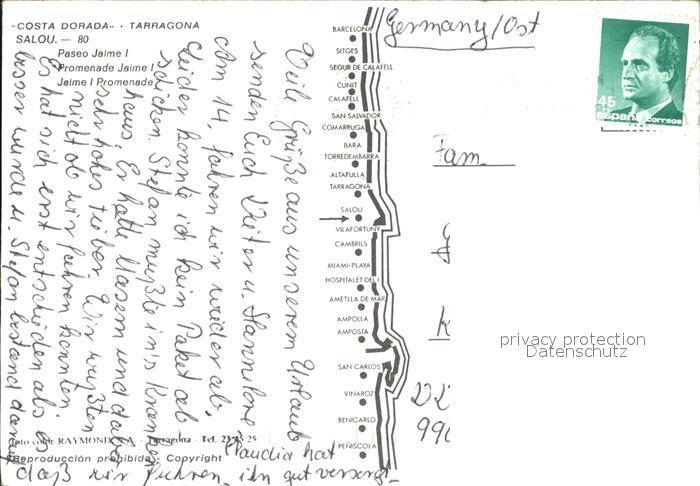 "COSTA DORADA" - TARRAGONA
SALOU. — 80
Paseo Jaime I
Promenade Jaime I
Jaime I Promenade
Viele Grüße aus unserem Urlaub
senden Euch Dieter u. Hannelore
Am 14. fahren wir wieder ab.
Leider konnte ich kein Paket ab
schicken. Stefan mußte in's Kranken
haus. Er hatte Masern und dabei
sehr hohes Fieber. Wir wußten
nicht ob wir fahren konnten.
Es hat sich erst entschieden als es
besser wurde u. Stefan bestand darauf
daß wir fuhren. Claudia hat
ihn gut versorgt.
RAYMOND
Tarragona - Tel.
Reproducción prohibida - Copyright
BARCELONA
SITGES
SEGUR DE CALAFELL
CUNIT
CALAFELL
SAN SALVADOR
COMARRUGA
BARA
TORREDEMBARRA
ALTAFULLA
TARRAGONA
SALOU
VILAFORTUNY
CAMBRILS
MIAMI-PLAYA
HOSPITALET DEL I.
AMETLLA DE MAR
AMPOLLA
AMPOSTA
SAN CARLOS
VINAROZ
BENICARLO
PEÑISCOLA
Germany/Ost
45
españa correos
Fam.
privacy protection
Datenschutz